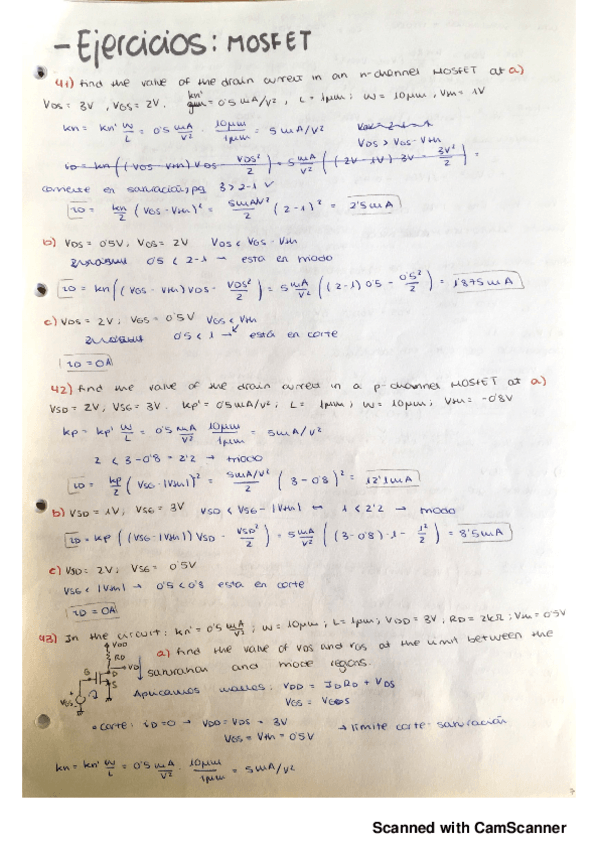 - Ejercicios: MOSFET
41) Find the value of the drain current in an n-channel MOSFET at a)
VDS = 3V, VGS = 2V. kn' = 0'5 mA/V², L = 1μm; W = 10μm, Vtn = 1V
kn = kn' W/L = 0'5 mA/V² · 10μm/1μm = 5 mA/V²
VDS > VGS - Vtn
iD = kn((VGS - Vtn) VDS - VDS²/2) = 5 mA/V² ((2V - 1V) 3V - 3V²/2) =
corriente en saturación, pq 3 > 2-1 V
iD = kn/2 (VGS - Vtn)² = 5mA/V²/2 (2-1)² = 2'5 mA
b) VDS = 0'5V, VGS = 2V VDS < VGS - Vtn
0'5 < 2-1 → está en triodo
iD = kn((VGS - Vtn) VDS - VDS²/2) = 5 mA/V² ((2-1) 0'5 - 0'5²/2) = 1'875 mA
c) VDS = 2V; VGS = 0'5V VGS < Vtn
0'5 < 1 → está en corte
iD = 0A
42) Find the value of the drain current in a p-channel MOSFET at a)
VSD = 2V, VSG = 3V. kp' = 0'5 mA/V²; L = 1μm; W = 10μm; Vtn = -0'8V
kp = kp' W/L = 0'5 mA/V² 10μm/1μm = 5mA/V²
2 < 3 - 0'8 = 2'2 → triodo
iD = kp/2 (VSG - |Vtn|)² = 5mA/V²/2 (3 - 0'8)² = 12'1 mA
b) VSD = 1V, VSG = 3V VSD < VSG - |Vtn| 1 < 2'2 → triodo
iD = kp((VSG - |Vtn|) VSD - VSD²/2) = 5 mA/V² ((3-0'8)·1 - 1²/2) = 8'5mA
c) VSD = 2V; VSG = 0'5V
VSG < |Vtn| → 0'5 < 0'8 está en corte
iD = 0A
43) In the circuit: kn' = 0'5 mA/V²; W = 10μm; L = 1μm; VDD = 3V; RD = 2kΩ; Vtn = 0'5V
a) find the value of VDS and VGS at the limit between the
saturation and triode regions.
VDD
RD
VD
G
D
S
VGS
Aplicamos mallas: VDD = IDRD + VDS
VGS = VGS
• corte: iD = 0 → VDD = VDS = 3V
VGS = Vtn = 0'5V
→ límite corte-saturación
kn = kn' W/L = 0'5 mA/V² · 10μm/1μm = 5mA/V²
Scanned with CamScanner